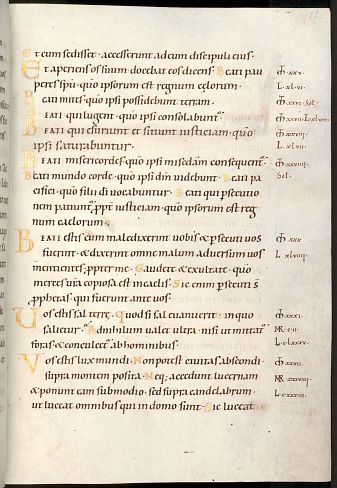 Et cum sedisset · accesserunt ad eum discipuli eius ·
Et aperiens os suum · docebat eos dicens · Beati pau
peres spū · quo ipsorum est regnum cęlorum ·
Beati mites · quo ipsi possidebunt terram ·
Beati qui lugent · quo ipsi consolabunt̄ ·
Beati qui esuriunt et sitiunt iusticiam · quo
ipsi saturabuntur ·
Beati misericordes · quo ipsi mīsediam consequent̄ ·
Beati mundo corde · quo ipsi dm̄ uidebunt · Beati pa
cifici · quo filii di uocabuntur · Beati qui p̄secutio
nem patiunt̄ ppt̄ iusticiam · quo ipsorum est reg
num caelorum ·
Beati estis cum maledixerint uobis & p̄secuti uos
fuerint · & dixerint omne malum aduersum uos
mentientes · ppter me · Gaudete & exultate · quo
merces ur̄a copiosa est in caelis · Sic enim p̄secuti s̄
pphetas · qui fuerunt ante uos ·
Uos estis sal terrę · Quod si sal euanuerit · in quo
salietur · Ad nihilum ualet ultra · nisi ut mittat̄
foras · & conculcet̄ ab hominibus ·
Vos estis lux mundi · Non potest ciuitas abscondi ·
supra montem posita · Neq; accedunt lucernam
& ponunt eam sub modio · sed supra candelabrum ·
ut luceat omnibus qui in domo sunt · Sic luceat